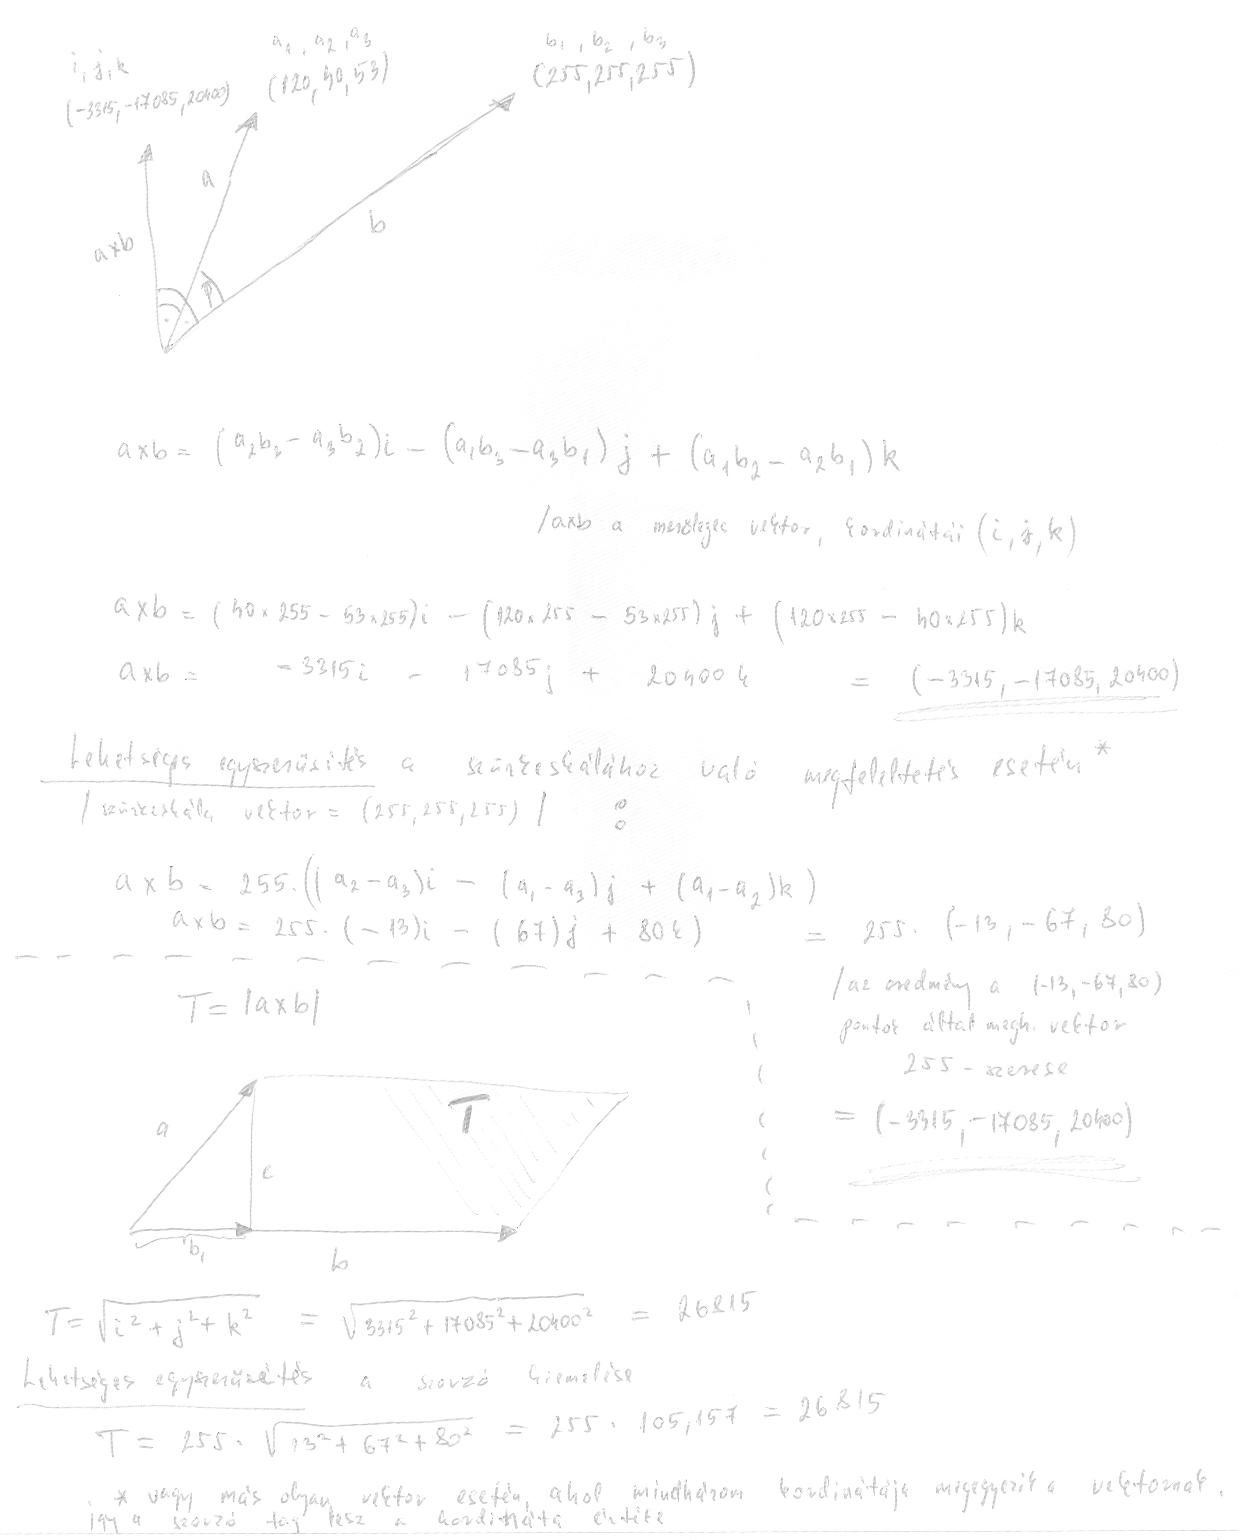 a₁, a₂, a₃
b₁, b₂, b₃
i, j, k
(120, 40, 53)
(255, 255, 255)
(-3315, -17085, 20400)
a
b
axb
axb = (a₂b₃ - a₃b₂)i - (a₁b₃ - a₃b₁)j + (a₁b₂ - a₂b₁)k
/axb a merőleges vektor, kordinátái (i, j, k)
axb = (40x255 - 53x255)i - (120x255 - 53x255)j + (120x255 - 40x255)k
axb = -3315i - 17085j + 20400k = (-3315, -17085, 20400)
Lehetséges egyszerűsítés a szürkeskálához való megfeleltetés esetén*
/szürkeskála vektor = (255, 255, 255)/ :
axb = 255·((a₂-a₃)i - (a₁-a₃)j + (a₁-a₂)k)
axb = 255·(-13)i - (67)j + 80k) = 255·(-13, -67, 80)
/az eredmény a (-13, -67, 80)
pontok által megh. vektor
255-szerese
= (-3315, -17085, 20400)
T = |axb|
a
T
c
b₁
b
T = √i² + j² + k² = √3315² + 17085² + 20400² = 26815
Lehetséges egyszerűsítés a szorzó kiemelése
T = 255·√13² + 67² + 80² = 255·105,157 = 26815
* vagy más olyan vektor esetén, ahol mindhárom kordinátája megegyezik a vektornak,
így a szorzó tag lesz a kordináta értéke